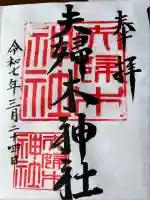 奉拝
夫婦木神社
令和七年三月二四日